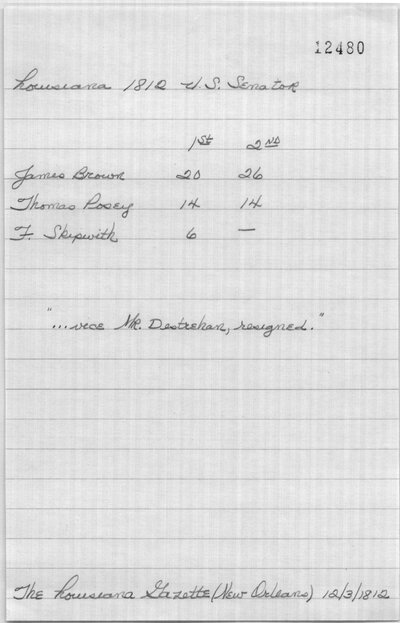 12480
Louisiana 1812 U.S. Senator
1st 2nd
James Brown 20 26
Thomas Posey 14 14
F. Skipwith 6 —
"...vice Mr. Destrehan, resigned."
The Louisiana Gazette (New Orleans) 12/3/1812